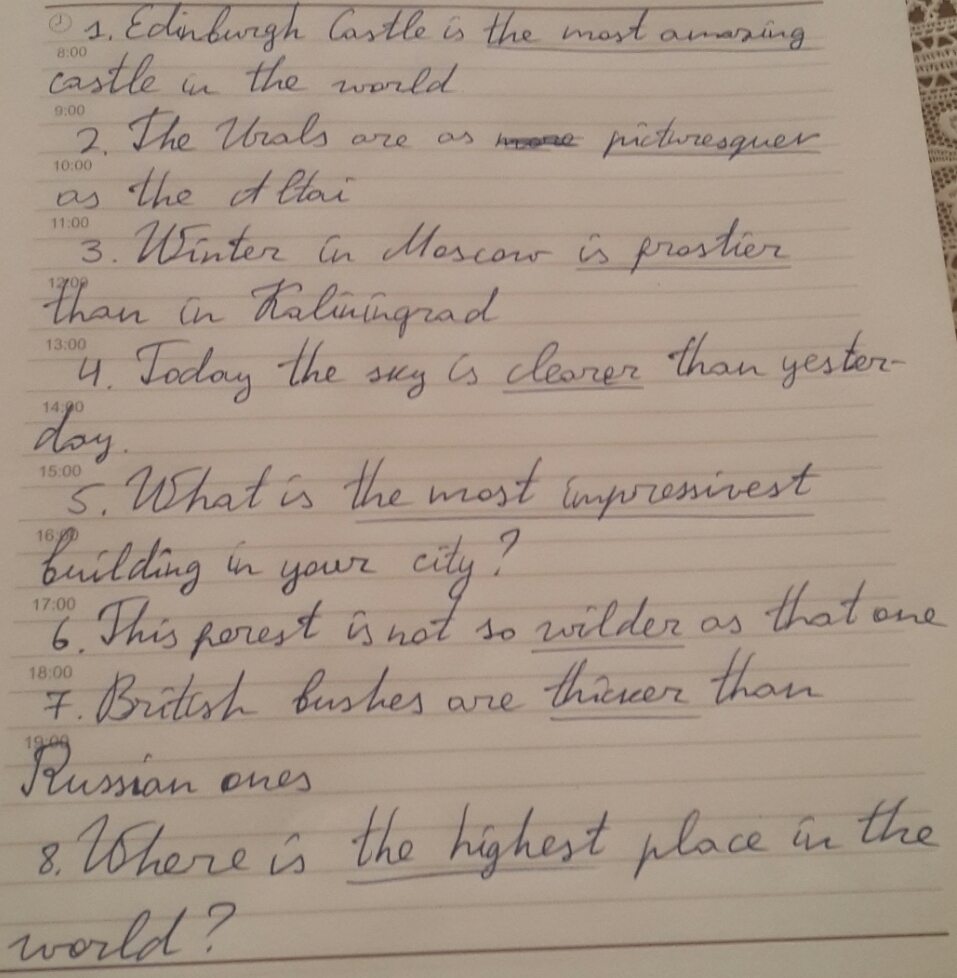 1. Edinburgh Castle is the most amazing
8:00
castle in the world
9:00
2. The Urals are as more picturesquer
10:00
as the Altai
11:00
3. Winter in Moscow is frostier
12:00
than in Kaliningrad
13:00
4. Today the sky is clearer than yester-
14:00
day.
15:00
5. What is the most impressivest
16:00
building in your city?
17:00
6. This forest is not so wilder as that one
18:00
7. British bushes are thicker than
19:00
Russian ones
8. Where is the highest place in the
world?